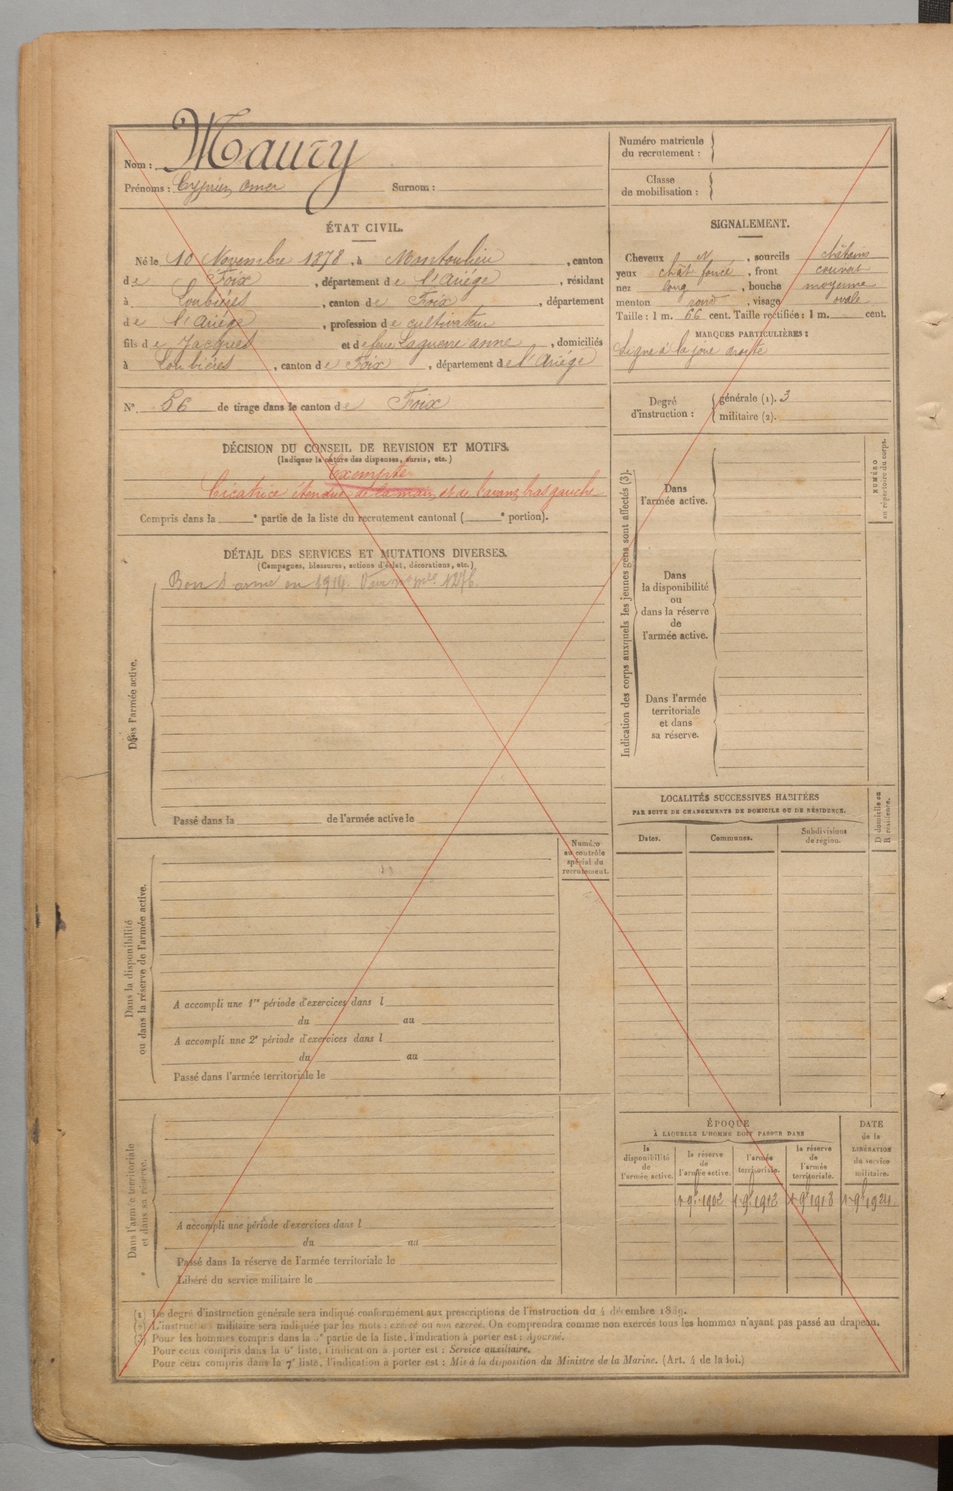 Nom : Maury
Prénoms : Cyprien Omer Surnom :
Numéro matricule du recrutement :
Classe de mobilisation :
ÉTAT CIVIL.
Né le 10 Novembre 1878, à Montoulieu, canton
de Foix, département de l'Ariège, résidant
à Loubières, canton de Foix, département
de l'Ariège, profession de cultivateur
fils de Jacques et de feue Laguerre anne, domiciliés
à Loubières, canton de Foix, département de l'Ariège
N° 86 de tirage dans le canton de Foix
SIGNALEMENT.
Cheveux et, sourcils châtains
yeux chât foncé, front couvert
nez long, bouche moyenne
menton rond, visage ovale
Taille : 1 m. 66 cent. Taille rectifiée : 1 m. cent.
MARQUES PARTICULIÈRES :
Signe à la joue droite
Degré d'instruction :
générale (1). 3
militaire (2).
DÉCISION DU CONSEIL DE REVISION ET MOTIFS.
(Indiquer la nature des dispenses, sursis, etc.)
Exempté
Cicatrice étendue de la main et de l'avant bras gauche
Compris dans la e partie de la liste du recrutement cantonal ( e portion).
DÉTAIL DES SERVICES ET MUTATIONS DIVERSES.
(Campagnes, blessures, actions d'éclat, décorations, etc.)
Bon s. armé en 1914. 1276
Dans l'armée active.
Passé dans la de l'armée active le
Indication des corps auxquels les jeunes gens sont affectés (3).
Dans l'armée active.
Dans la disponibilité ou dans la réserve de l'armée active.
Dans l'armée territoriale et dans sa réserve.
NUMÉRO au répertoire du corps.
LOCALITÉS SUCCESSIVES HABITÉES
PAR SUITE DE CHANGEMENTS DE DOMICILE OU DE RÉSIDENCE.
Dates. Communes. Subdivisions de région.
D domicile ou R résidence.
Numéro au contrôle spécial du recrutement.
Dans la disponibilité ou dans la réserve de l'armée active.
A accompli une 1re période d'exercices dans l
du au
A accompli une 2e période d'exercices dans l
du au
Passé dans l'armée territoriale le
Dans l'armée territoriale et dans sa réserve.
A accompli une période d'exercices dans l
du au
Passé dans la réserve de l'armée territoriale le
Libéré du service militaire le
ÉPOQUE
À LAQUELLE L'HOMME DOIT PASSER DANS
la disponibilité de l'armée active.
la réserve de l'armée active.
l'armée territoriale.
la réserve de l'armée territoriale.
DATE de la LIBÉRATION du service militaire.
1 9bre 1902 1 9bre 1912 1 9bre 1918 1 9bre 1924
(1) Le degré d'instruction générale sera indiqué conformément aux prescriptions de l'instruction du 4 décembre 1889.
(2) L'instruction militaire sera indiquée par les mots : exercé ou non exercé. On comprendra comme non exercés tous les hommes n'ayant pas passé au drapeau.
(3) Pour les hommes compris dans la 2e partie de la liste, l'indication à porter est : ajourné.
Pour ceux compris dans la 6e liste, l'indication à porter est : Service auxiliaire.
Pour ceux compris dans la 7e liste, l'indication à porter est : Mis à la disposition du Ministre de la Marine. (Art. 4 de la loi.)